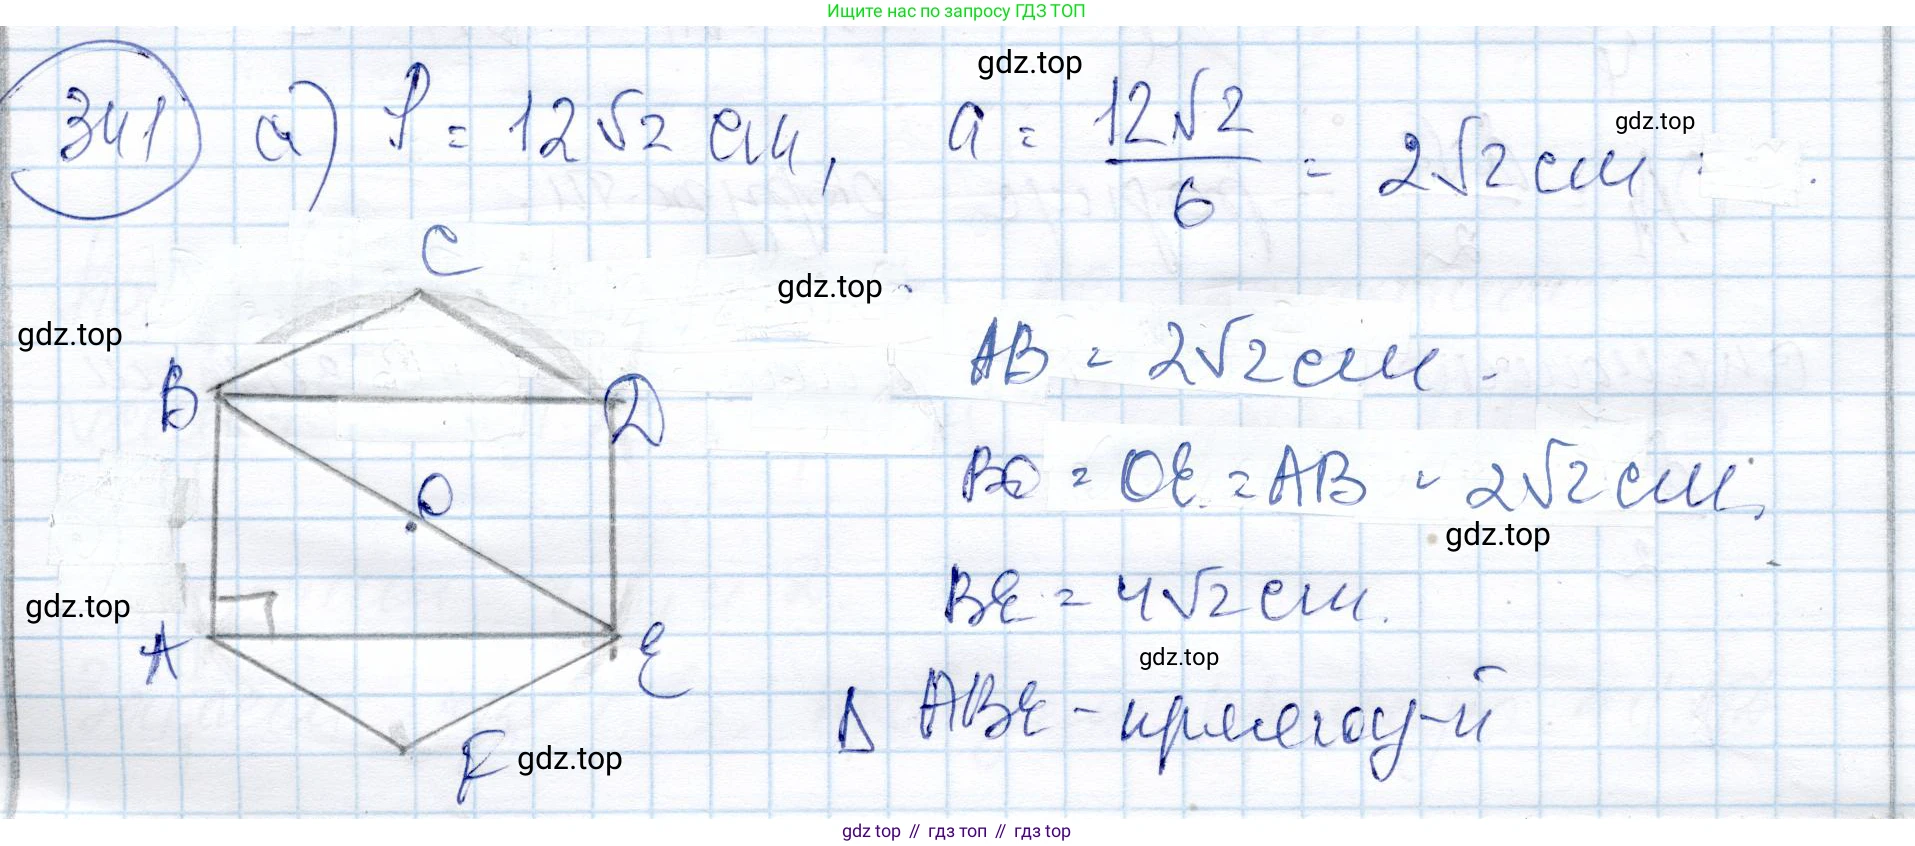 Ищите нас по запросу ГДЗ ТОП
gdz.top
341 а) P = 12√2 см, a = 12√2/6 = 2√2 см
gdz.top
C
gdz.top
gdz.top
AB = 2√2 см.
B
D
BO = OE = AB = 2√2 см,
O
gdz.top
BE = 4√2 см.
gdz.top
A
E
gdz.top
Δ ABE - прямоуг-й
F
gdz.top
gdz top // гдз топ // гдз top